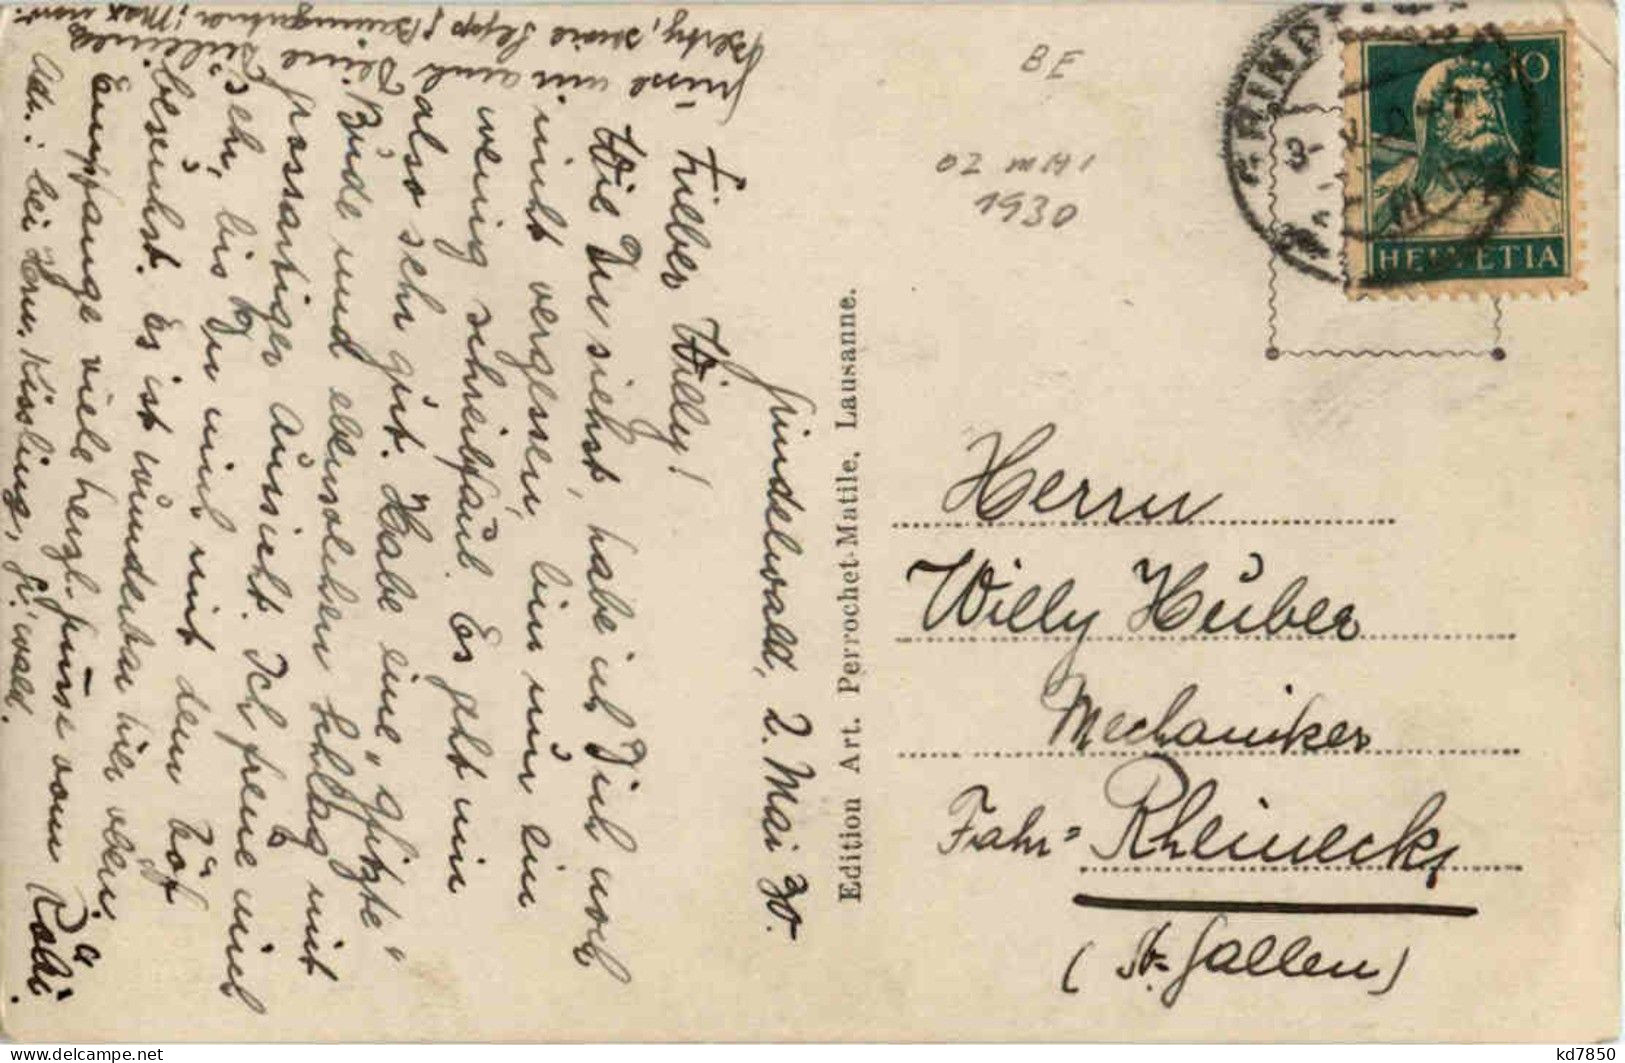 Grindelwald, 2. Mai 30.
Lieber Willy!
Wie Du siehst, habe ich Dich noch
nicht vergessen, bin nur ein
wenig schreibfaul. Es geht mir
also sehr gut. Habe eine „
Bude und ebensolchen Schlag mit
grossartiger Aussicht. Ich freue mich
sehr, bis Du mich mit dem
besuchst. Es ist wunderbar hier oben.
Empfange viele herzl. Grüsse vom
Adr.: bei Hrn. Kissling, G'wald.
Grüsse mir auch Deine
sowie Sepp,
Edition Art. Perrochet-Matile, Lausanne.
BE
02 MAI
1930
GRIND
10
HELVETIA
Herrn
Willy Huber
Mechaniker
Fahr=Rheineck
(St. Gallen)
kd7850